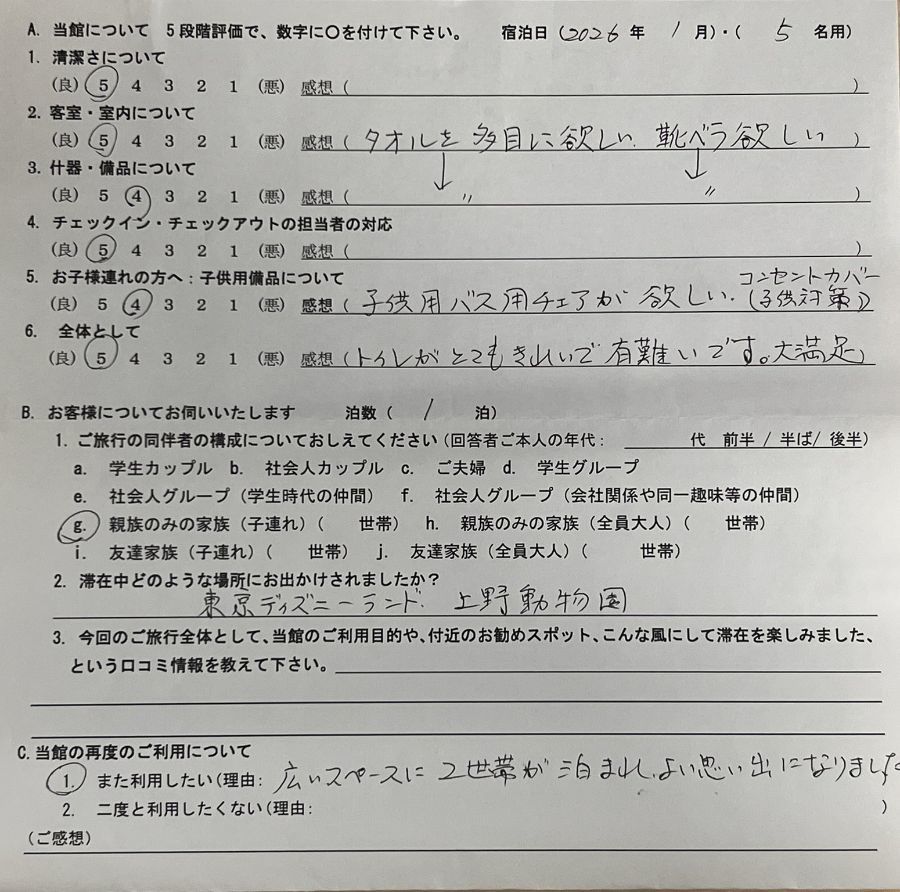 A. 当館について 5段階評価で、数字に○を付けて下さい。 宿泊日(2026年 1月)・( 5 名用)
1. 清潔さについて
(良) 5 4 3 2 1 (悪) 感想( )
2. 客室・室内について
(良) 5 4 3 2 1 (悪) 感想(タオルを多目に欲しい. 靴ベラ欲しい)
3. 什器・備品について
(良) 5 4 3 2 1 (悪) 感想( ↓ 〃 ↓ 〃 )
4. チェックイン・チェックアウトの担当者の対応
(良) 5 4 3 2 1 (悪) 感想( )
5. お子様連れの方へ:子供用備品について コンセントカバー
(良) 5 4 3 2 1 (悪) 感想(子供用バス用チェアが欲しい.(子供対策))
6. 全体として
(良) 5 4 3 2 1 (悪) 感想(トイレがとてもきれいで有難いです。大満足)
B. お客様についてお伺いいたします 泊数( 1 泊)
1. ご旅行の同伴者の構成についておしえてください(回答者ご本人の年代: 代 前半 / 半ば/ 後半)
a. 学生カップル b. 社会人カップル c. ご夫婦 d. 学生グループ
e. 社会人グループ(学生時代の仲間) f. 社会人グループ(会社関係や同一趣味等の仲間)
g. 親族のみの家族(子連れ)( 世帯) h. 親族のみの家族(全員大人)( 世帯)
i. 友達家族(子連れ)( 世帯) j. 友達家族(全員大人)( 世帯)
2. 滞在中どのような場所にお出かけされましたか?
東京ディズニーランド. 上野動物園
3. 今回のご旅行全体として、当館のご利用目的や、付近のお勧めスポット、こんな風にして滞在を楽しみました、
という口コミ情報を教えて下さい。
C. 当館の再度のご利用について
1. また利用したい(理由: 広いスペースに2世帯が泊まれ、よい思い出になりました
2. 二度と利用したくない(理由: )
(ご感想)